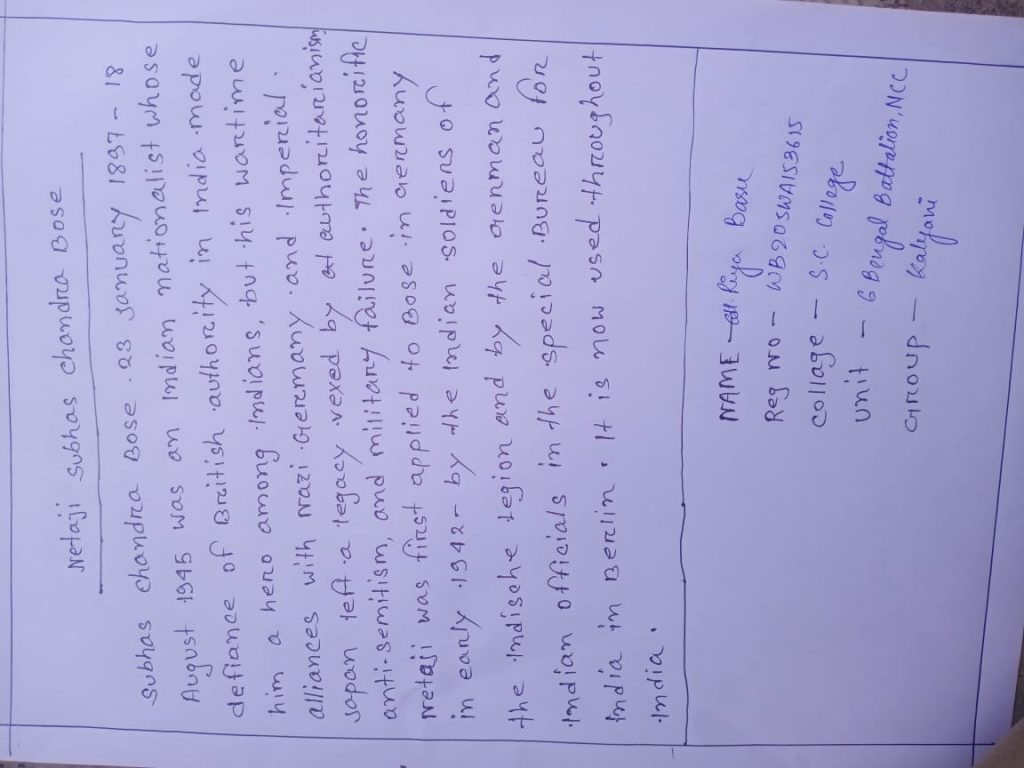 Netaji subhas chandra Bose
subhas chandra Bose . 23 January 1897 - 18
August 1945 was an Indian nationalist whose
defiance of British authority in India made
him a hero among Indians, but his wartime
alliances with Nazi Germany and Imperial
Japan left a legacy vexed by authoritarianism,
anti-semitism, and military failure. The honorific
Netaji was first applied to Bose in Germany
in early 1942 - by the Indian soldiers of
the Indische legion and by the Genman and
Indian officials in the special Bureau for
India in Berlin. It is now used throughout
India.
NAME - Riya Basu
Reg NO - WB20SWA153615
Collage - S.C. Collage
Unit - 6 Bengal Battalion, NCC
Group - Kalyani